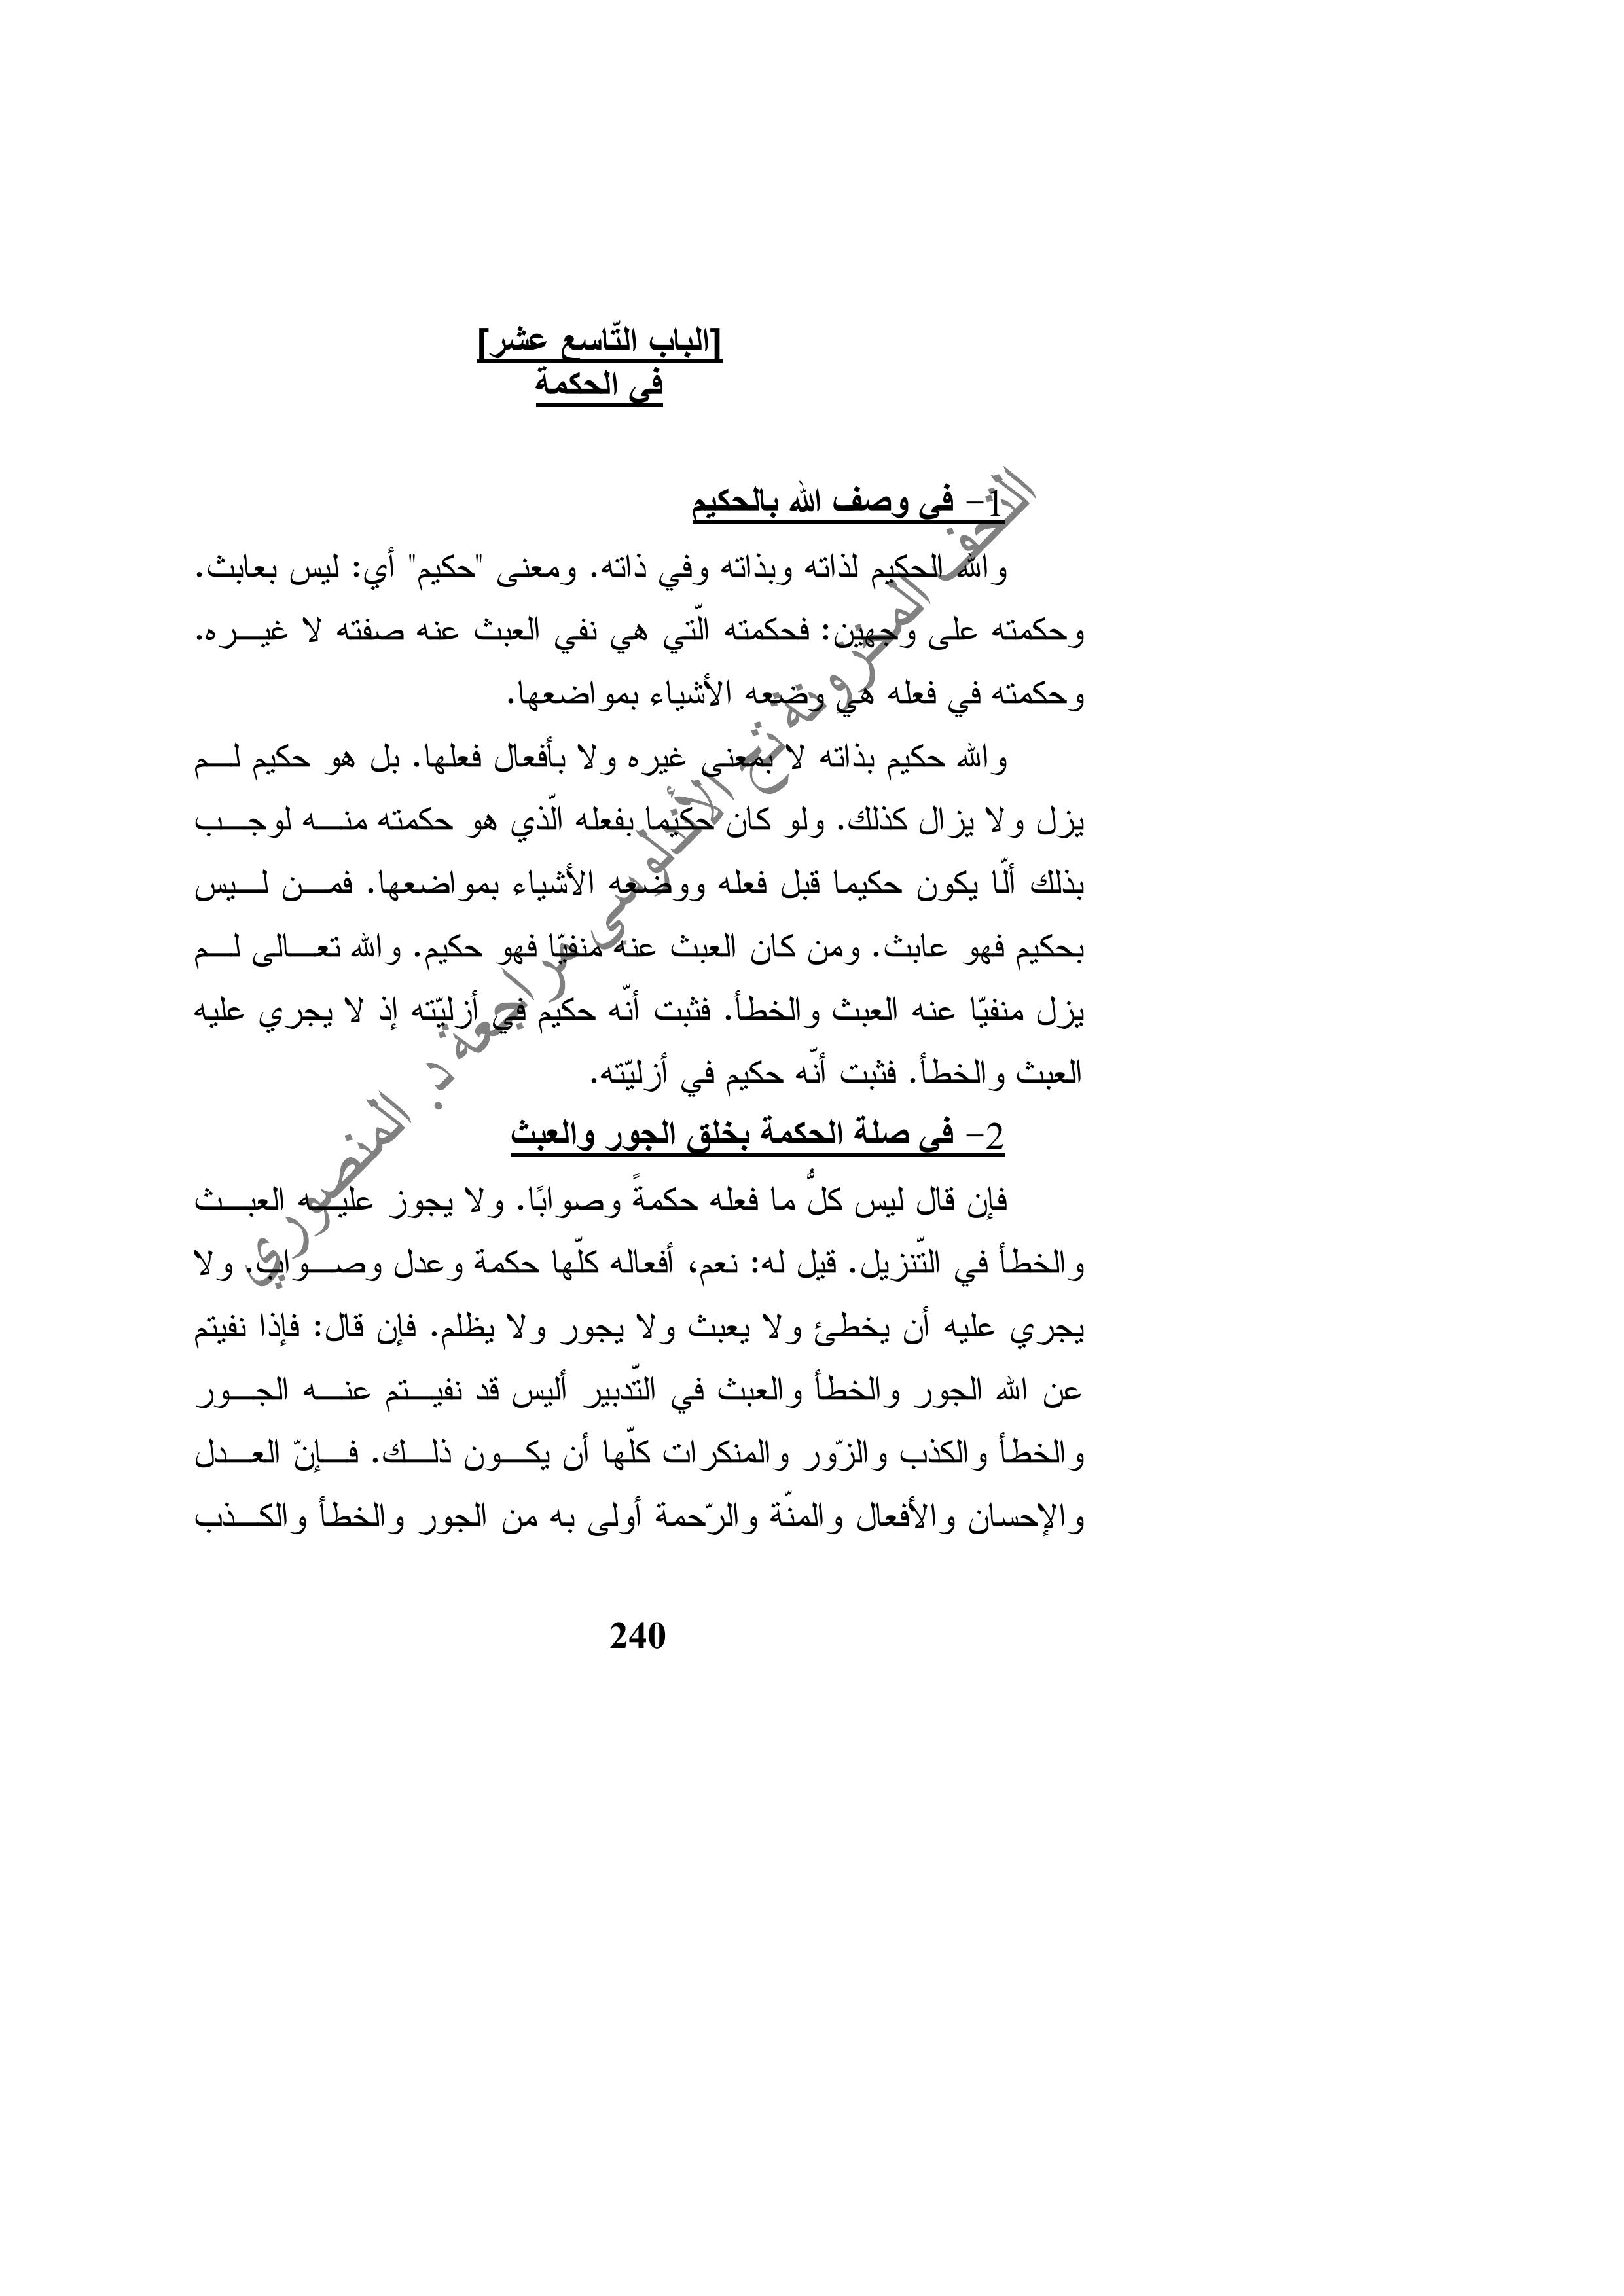 [الباب التّاسع عشر]
في الحكمة
1- في وصف الله بالحكيم
والله الحكيم لذاته وبذاته وفي ذاته. ومعنى "حكيم" أي: ليس بعابث.
وحكمته على وجهين: فحكمته الّتي هي نفي العبث عنه صفته لا غيره.
وحكمته في فعله هي وضعه الأشياء بمواضعها.
والله حكيم بذاته لا بمعنى غيره ولا بأفعال فعلها. بل هو حكيم لم
يزل ولا يزال كذلك. ولو كان حكيما بفعله الّذي هو حكمته منه لوجب
بذلك ألّا يكون حكيما قبل فعله ووضعه الأشياء بمواضعها. فمن ليس
بحكيم فهو عابث. ومن كان العبث عنه منفيّا فهو حكيم. والله تعالى لم
يزل منفيّا عنه العبث والخطأ. فثبت أنّه حكيم في أزليّته إذ لا يجري عليه
العبث والخطأ. فثبت أنّه حكيم في أزليّته.
2- في صلة الحكمة بخلق الجور والعبث
فإن قال ليس كلُّ ما فعله حكمةً وصوابًا. ولا يجوز عليه العبث
والخطأ في التّنزيل. قيل له: نعم، أفعاله كلّها حكمة وعدل وصواب. ولا
يجري عليه أن يخطئ ولا يعبث ولا يجور ولا يظلم. فإن قال: فإذا نفيتم
عن الله الجور والخطأ والعبث في التّدبير أليس قد نفيتم عنه الجور
والخطأ والكذب والزّور والمنكرات كلّها أن يكون ذلك. فإنّ العدل
والإحسان والأفعال والمنّة والرّحمة أولى به من الجور والخطأ والكذب
240
التحف المخزونة تح الأندلوسي مراجعة د. المنصوري